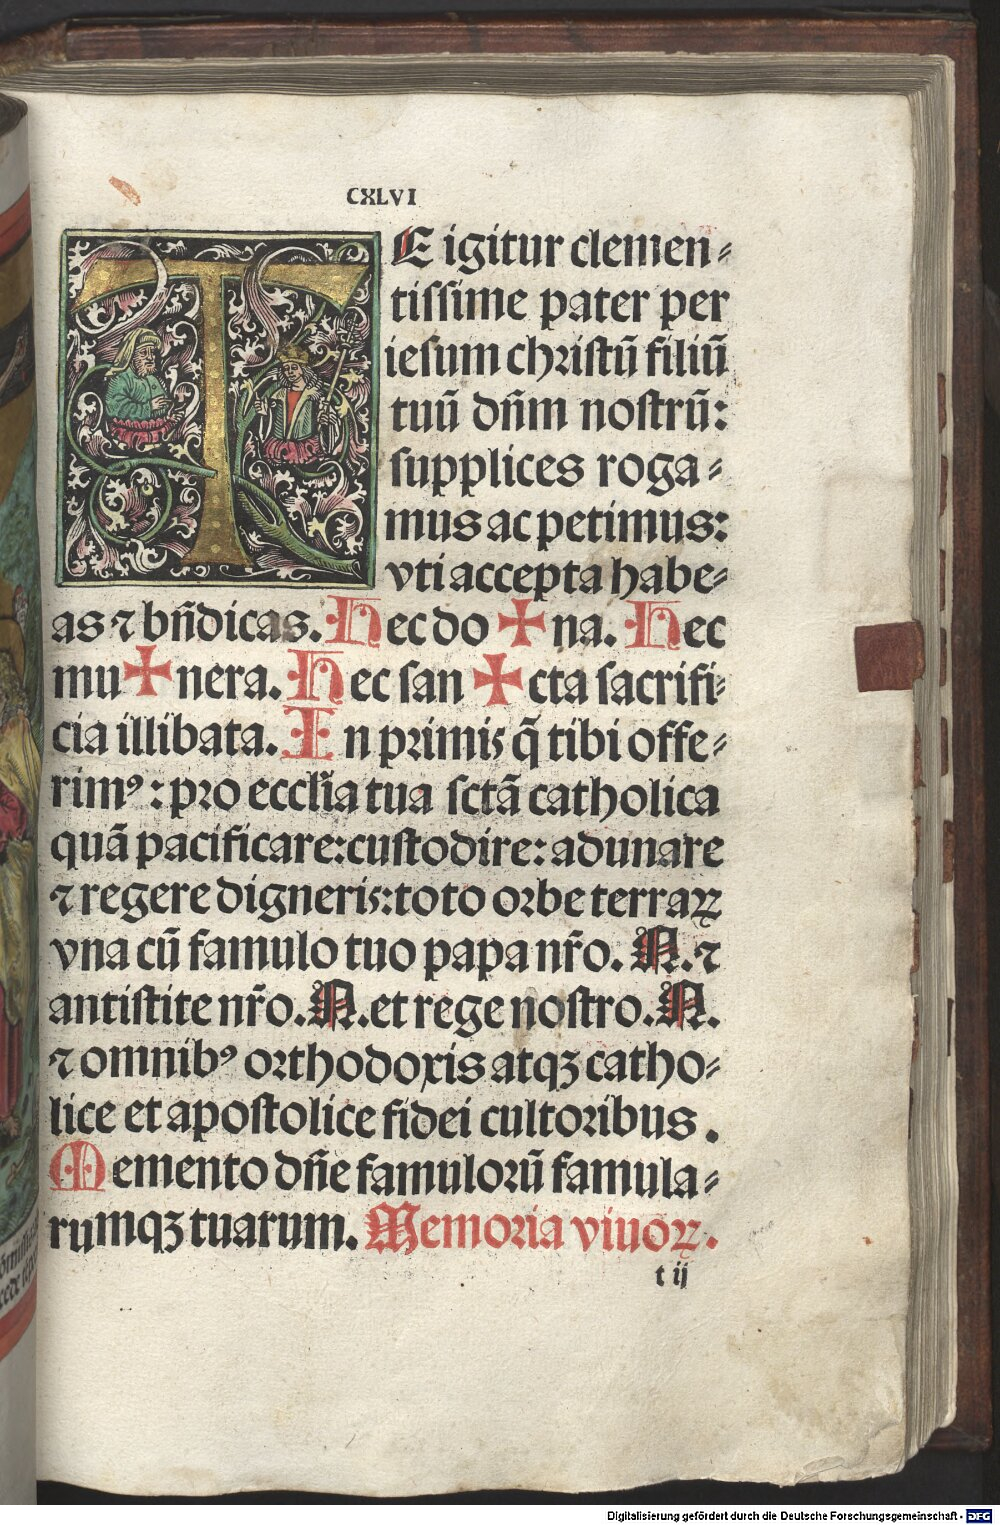 CXLVI
TE igitur clemen⸗
tissime pater per
iesum christū filiū
tuū dn̄m nostrū:
supplices roga⸗
mus ac petimus:
vti accepta habe⸗
as ⁊ bn̄dicas. Hec do ✠ na. Hec
mu ✠ nera. Hec san ✠ cta sacrifi⸗
cia illibata. In primis q̄ tibi offe⸗
rimꝰ: pro eccl̄ia tua sctā catholica
quā pacificare: custodire: adunare
⁊ regere digneris: toto orbe terraꝝ
vna cū famulo tuo papa nr̄o. N. ⁊
antistite nr̄o. N. et rege nostro. N.
⁊ omnibꝰ orthodoxis atqꝫ catho⸗
lice et apostolice fidei cultoribus.
Memento dn̄e famulorū famula⸗
rumqꝫ tuarum. Memoria viuoꝝ.
t ij
Digitalisierung gefördert durch die Deutsche Forschungsgemeinschaft - DFG